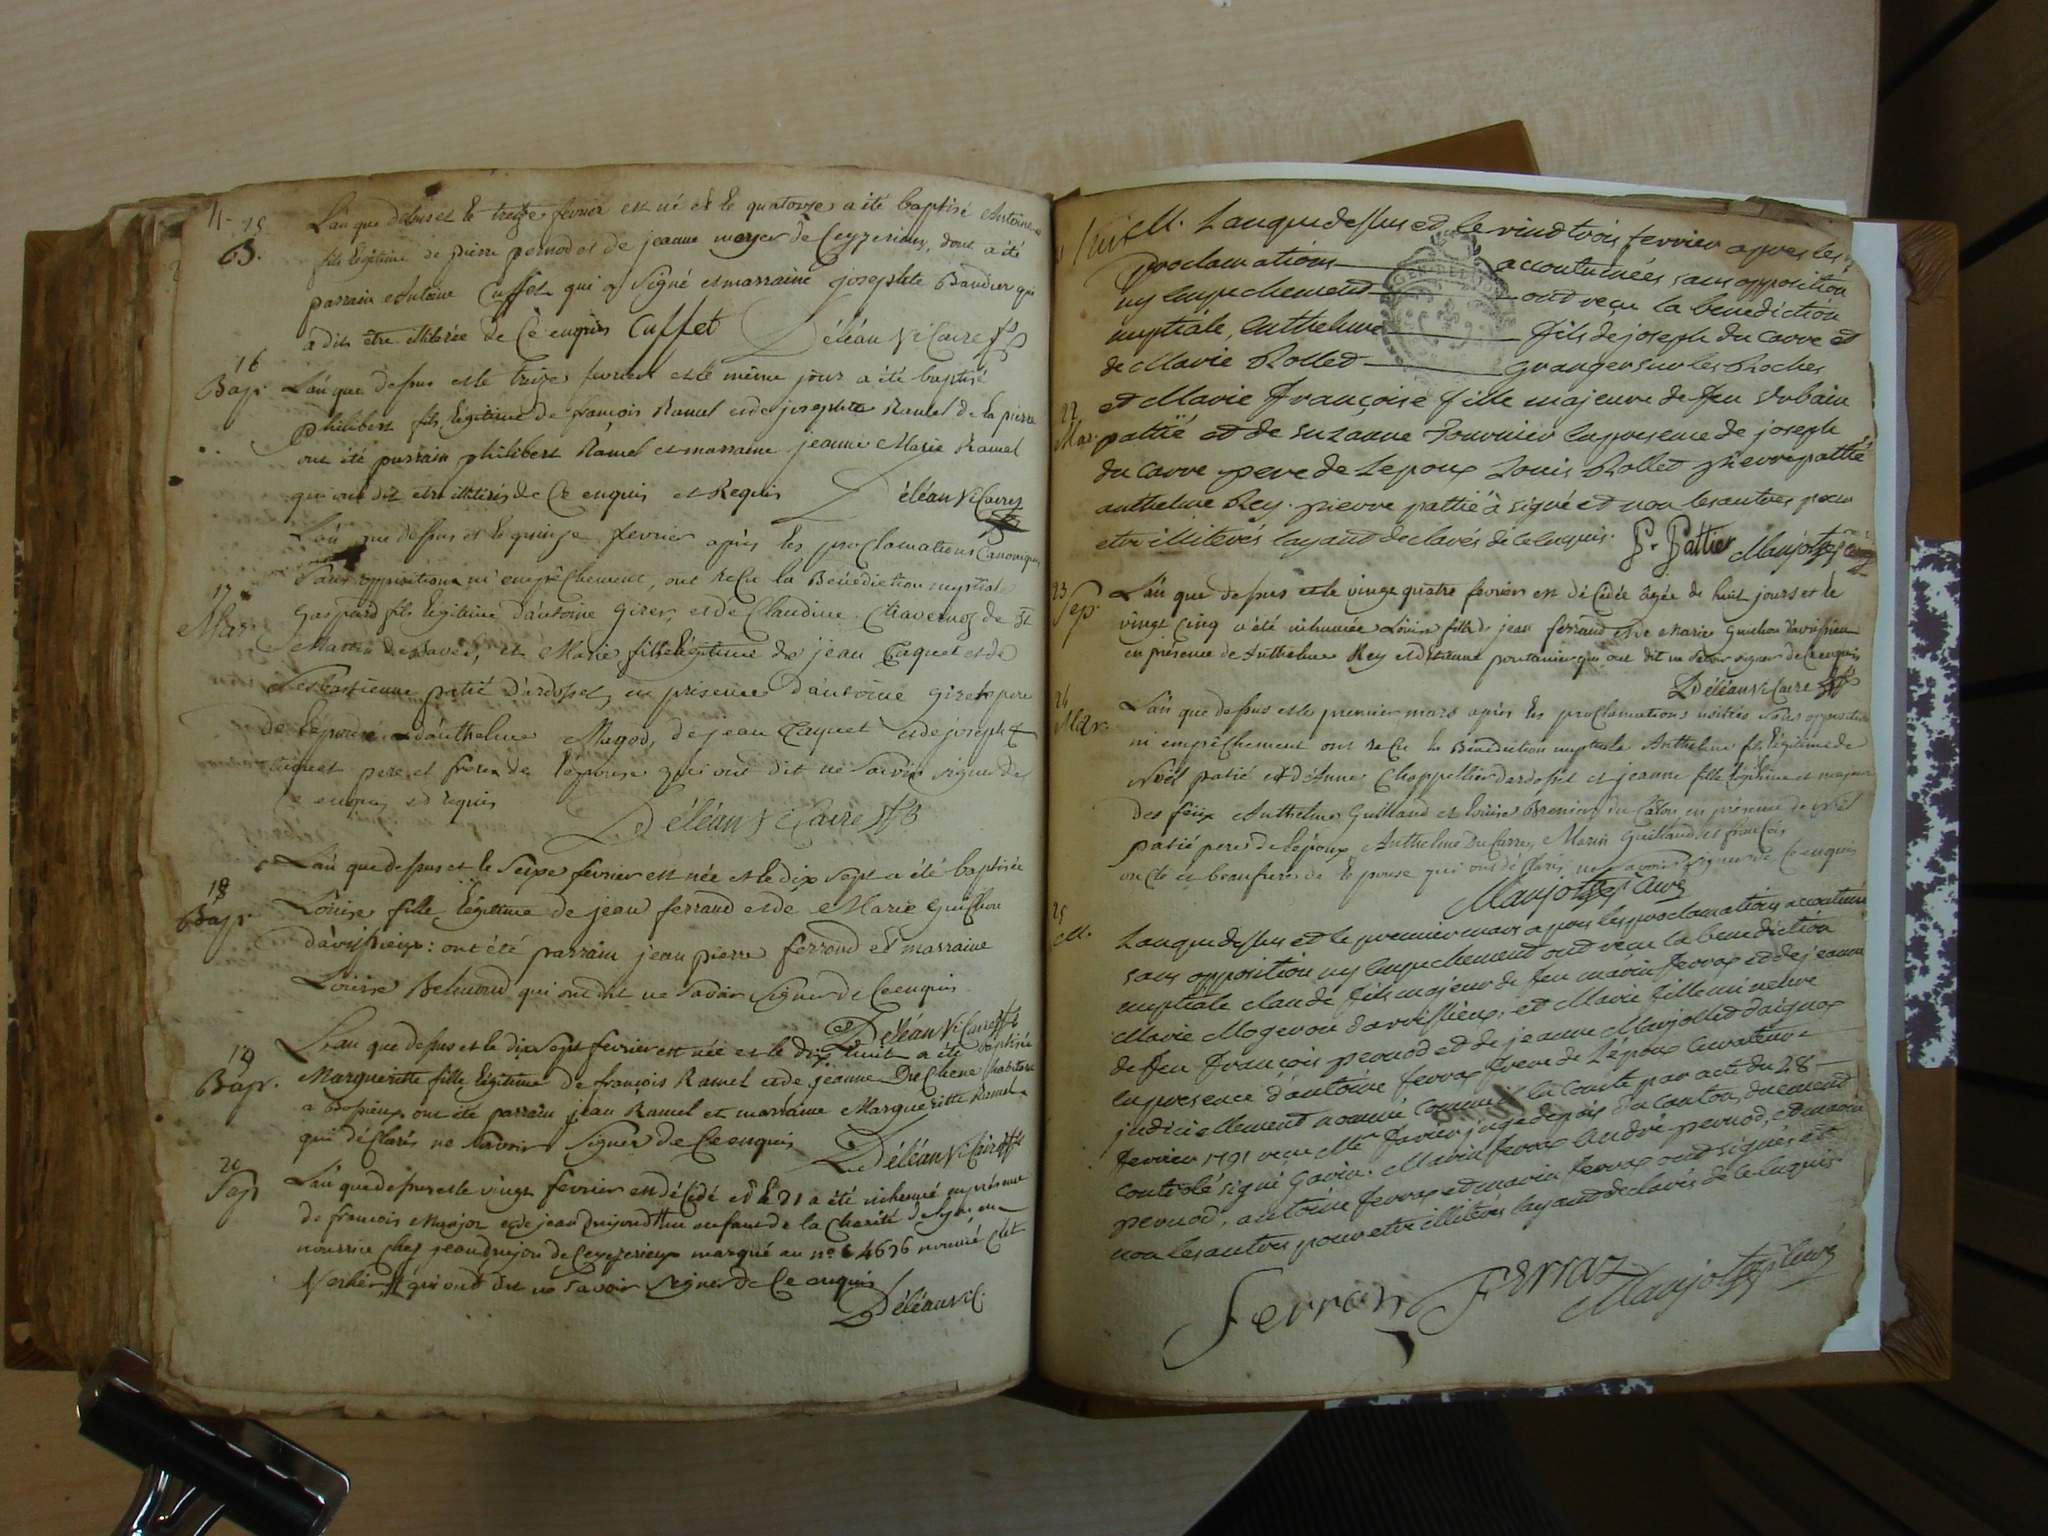 15
B.
L'an que dessus et le treize fevrier est né et le quatorze a été baptisé Antoine
fils légitime de pierre pernod et de jeanne moyer de Ceyzerieux, dont a été
parrain Antoine Cuffet qui a signé et marraine josephte Baudier qui
a dit être illiterée de ce enquis Cuffet Déléan Vicaire
16
Bap.
L'an que dessus et le treize fevrier et le même jour a été baptisé
philibert fils légitime de françois Ramel et de josephte Ramel de la pierre
ont été parrain philibert Ramel et marraine jeanne Marie Ramel
qui ont dit etre illitérés de ce enquis et Requis Déléan Vicaire
L'an que dessus et le quinze fevrier après les proclamations Canoniques
Sans opposition ni empêchement, ont reçu la Bénédiction nuptiale
17
Mar.
gaspard fils légitime d'antoine girer, et de Claudine Chavernoz de St
Martin de bavel, et Marie fille légitime de jean Caquet et de
Sebastienne patié d'ardosset, en présence d'antoine girer pere
de l'époux d'anthelme Magod, de jean Caquet et de joseph
Caquet pere et frere de l'épouse qui ont dit ne savoir signer de
ce enquis et requis
Déléan Vicaire
L'an que dessus et le seize fevrier est née et le dix sept a été baptisée
18
Bapt.
Loüise fille légitime de jean ferrand et de Marie Guillon
d'avrissieux: ont été parrain jean pierre ferrand et marraine
Loüise Belmond qui ont dit ne savoir signer de ce enquis
Déléan Vicaire
19
Bapt.
L'an que dessus et le dix sept fevrier est née et le dix huit a été baptisée
Marguerite fille légitime de françois Ramel et de jeanne DuChene habitans
a Bossieux ont été parrain jean Ramel et marraine Margueritte Ramel
qui déclarés ne savoir signer de ce enquis Déléan Vicaire
20
Sep.
L'an que dessus et le vingt fevrier est décédé et le 21 a été inhumé en présence
de francois Major et de jean Dujourdhui enfant de la Charité de Lyon, en
nourrice chez jean dujon de Ceyzerieux marqué au no. 4696 nommé
qui ont dit ne savoir signer de ce enquis
Déléan vic.
M. L'an que dessus et le vind trois fevrier apres les
proclamations accoutumées sans opposition
ny empechement ont reçu la benediction
nuptiale, Anthelme fils de joseph du Carre et
de Marie Rollet granger sur les Roches
22
Mar.
et Marie françoise fille majeure de feu Urbain
pattié et de suzanne fournier en presence de joseph
du Carre pere de L'epoux Louis Rollet pierre pattié
anthelme Rey. pierre pattié à signé et non les autres pour
etre illitérés layant declarés de ce enquis. P. Pattier Marjollet Curé
23
Sep.
L'an que dessus et le vingt quatre fevrier est décédée âgée de huit jours et le
vingt cinq a été inhumée Loüise fille de jean ferrand et de Marie Guillon d'avrissieu
en présence de Anthelme Rey et d'etienne pontanier qui ont dit ne savoir signer de ce enquis
Déléan Vicaire
24
Mar.
L'an que dessus et le premier mars après les proclamations usitées Sans opposition
ni empêchement ont reçu la Bénédiction nuptiale Anthelme fils légitime de
Noël patié et d'Anne Chappellier d'ardosset et jeanne fille légitime et majeure
des feux Anthelme Guilland et loüise Bremin du Catos en présence de Noël
patié pere de l'époux Anthelme DuCarre, Marin Guilland et françois
oncle et beaufrere de l'épouse qui ont déclaré ne savoir signer de ce enquis
Marjollet Curé
25
M.
L'an que dessus et le premier mars apres les proclamations accoutumé
sans opposition ny empechement ont reçu la benediction
nuptiale claude fils majeur de feu marin ferraz et de jeanne
Marie Mogeron d'avrissieux, et Marie fille mineure
de feu François pernod et de jeanne Marjollet d'aignoz
en presence d'antoine ferraz frere de L'epoux curateur
judiciellement nommé la Comte par acte du 28
fevrier 1791 reçu Mtre favier juge de paix du canton, duement
controlé signé Gavin. Marin ferraz André pernod, et marin
pernod, antoine ferraz et marin ferraz ont signés et
non les autres pour etre illitérés layant declarés de ce enquis
Ferraz Ferraz Marjollet Curé